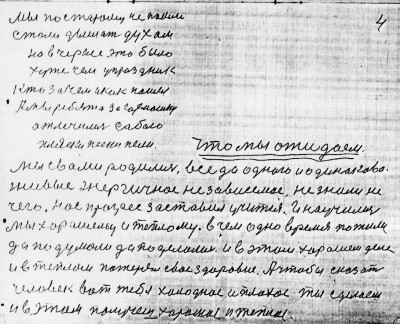 4
мы по старому не пошли
стали думат духам
но вчерне это было
хуже чем упраздник
Кто за чем и как пошел
отличилис сабою
пляски песни пели.
Что мы ожидаем.
Мы с вами родилис, все до одного и одинакова.
живые энергичное независемое, не знали ни
чего, нас прогрес заставил учится. И научилис
мы харошему и теплому, в чем одно время пожили
да подумали да поделали. и в этом харошем деле
и в теплом потерял свое здоровие. А чтобы сказат
человек вот тебя холодное и плохое ты сделаеш
и в этом получеш харошое и теплое.